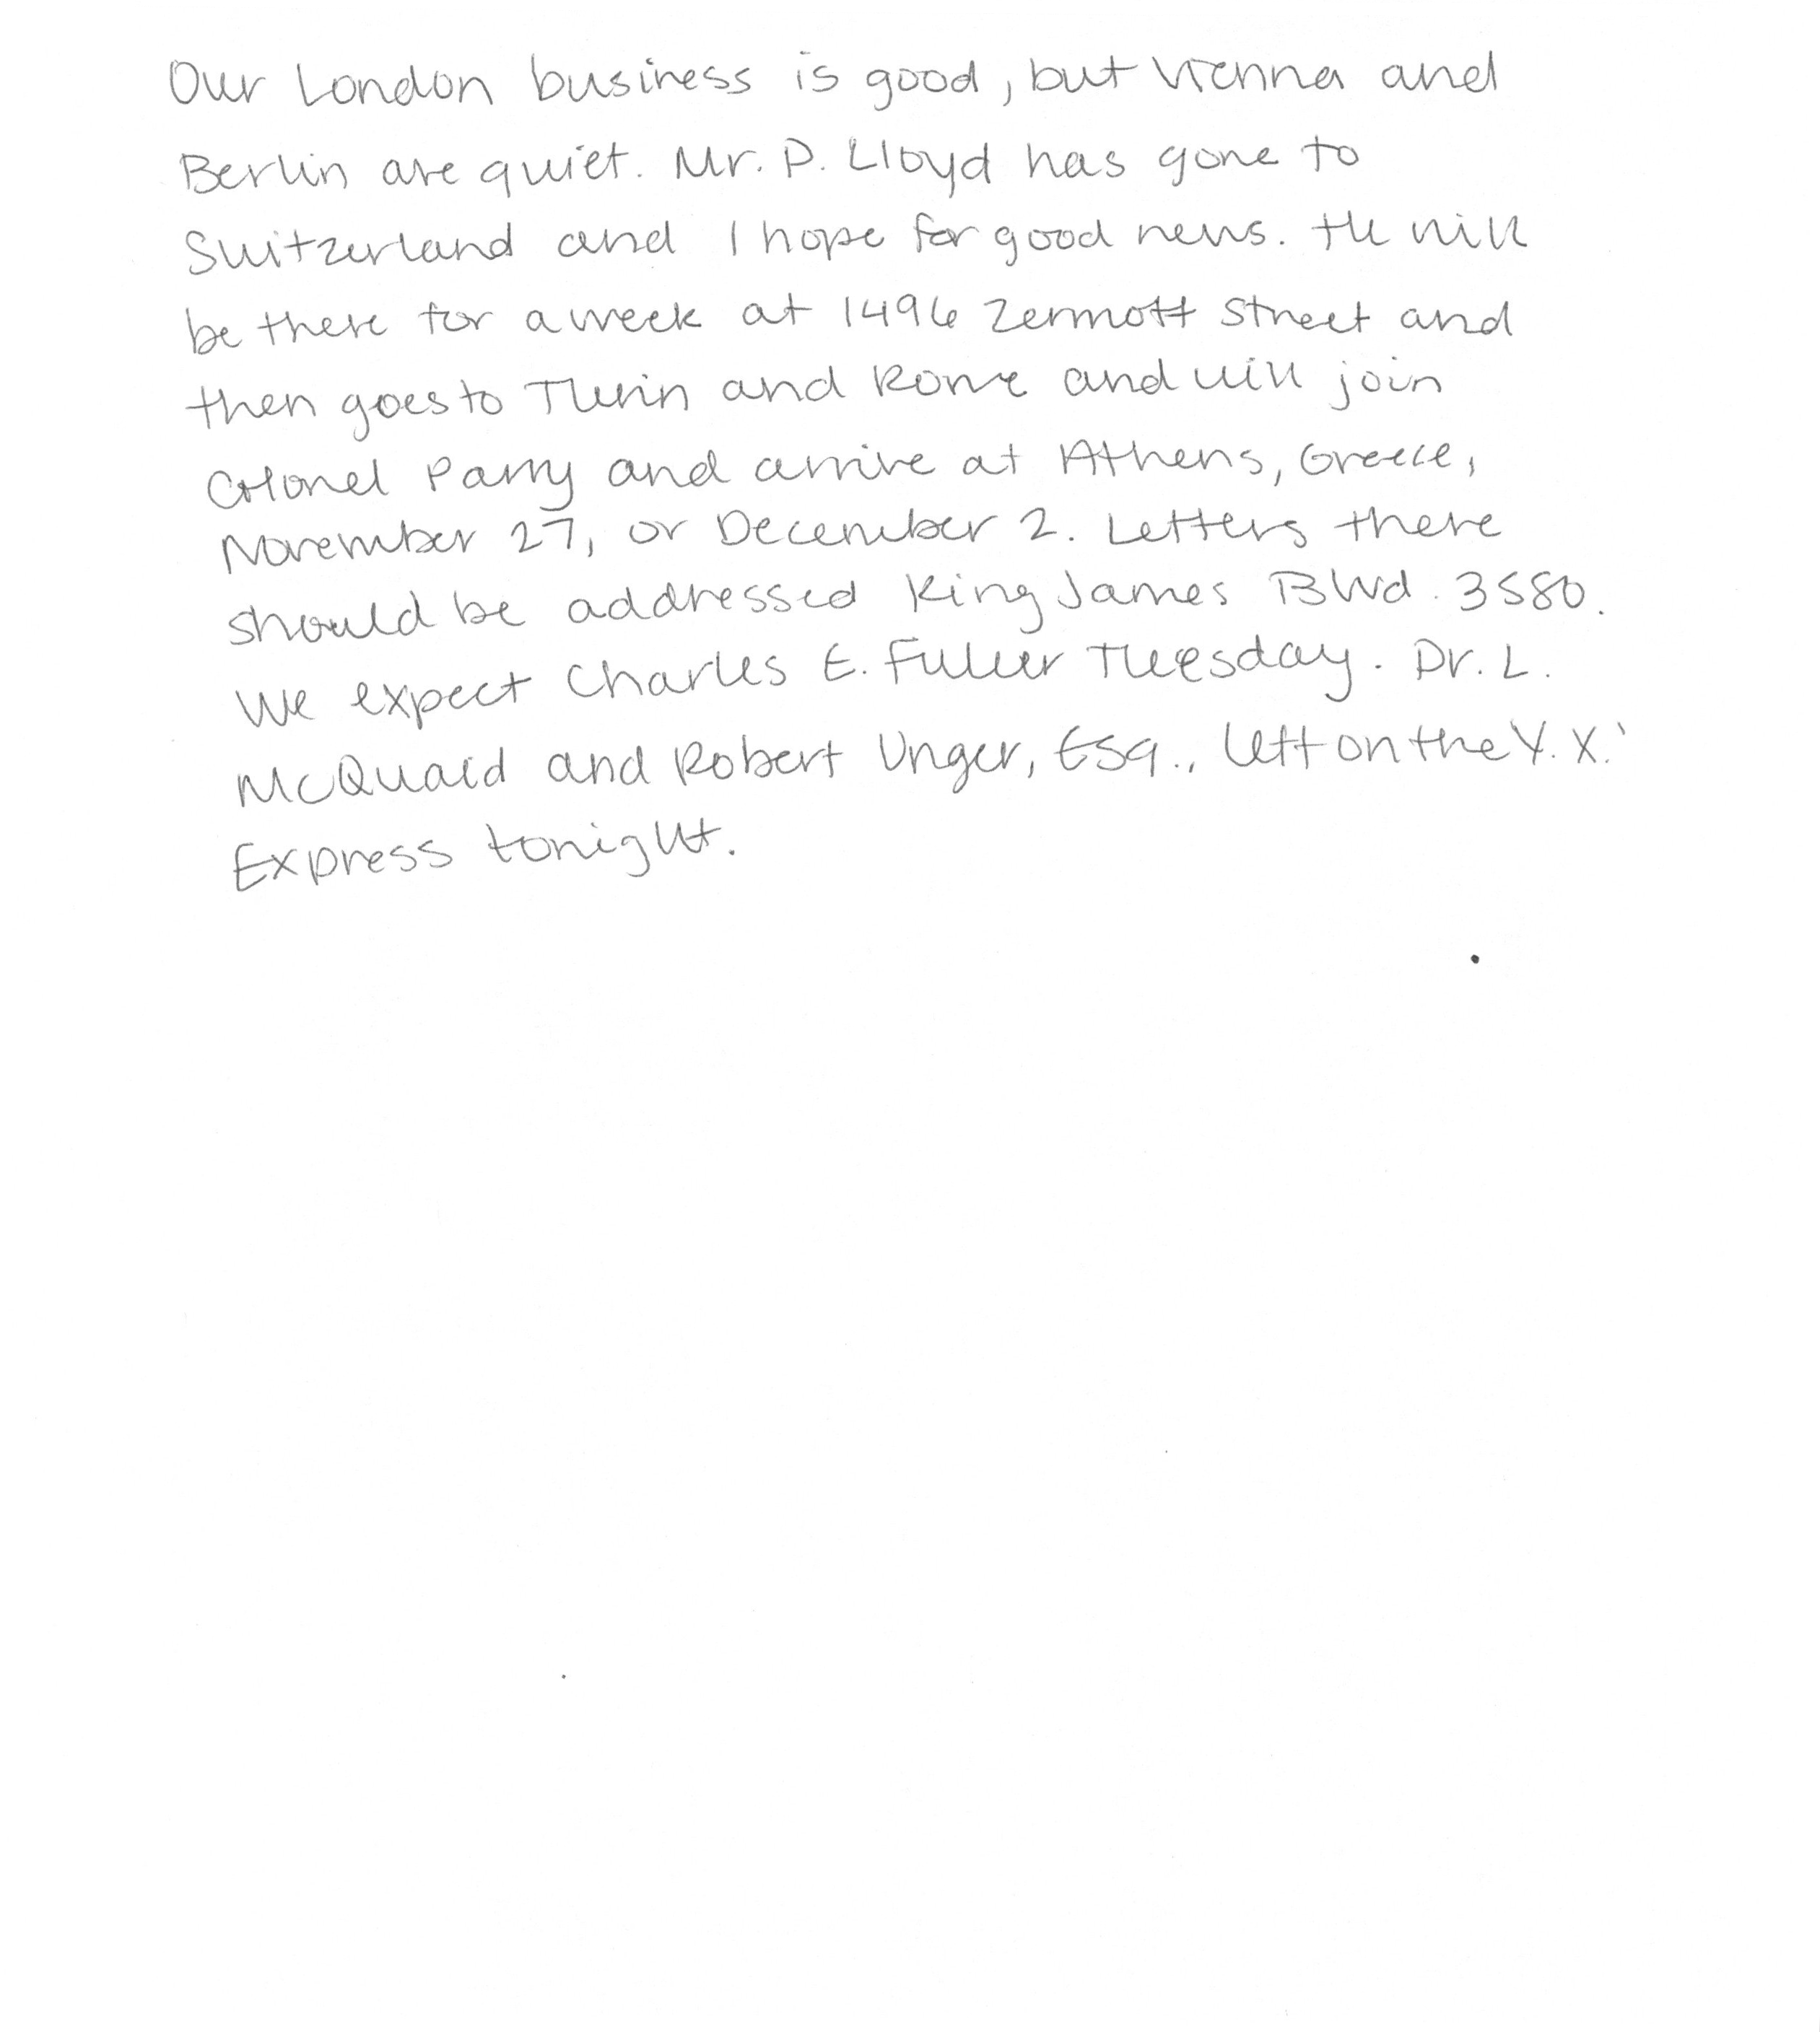 Our London business is good, but Vienna and
Berlin are quiet. Mr. D. Lloyd has gone to
Switzerland and I hope for good news. He will
be there for a week at 1496 Zermott Street and
then goes to Turin and Rome and will join
Colonel Parry and arrive at Athens, Greece,
November 27, or December 2. Letters there
should be addressed King James Blvd. 3580.
We expect Charles E. Fuller Tuesday. Dr. L.
McQuaid and Robert Unger, Esq., left on the Y.X.'
Express tonight.